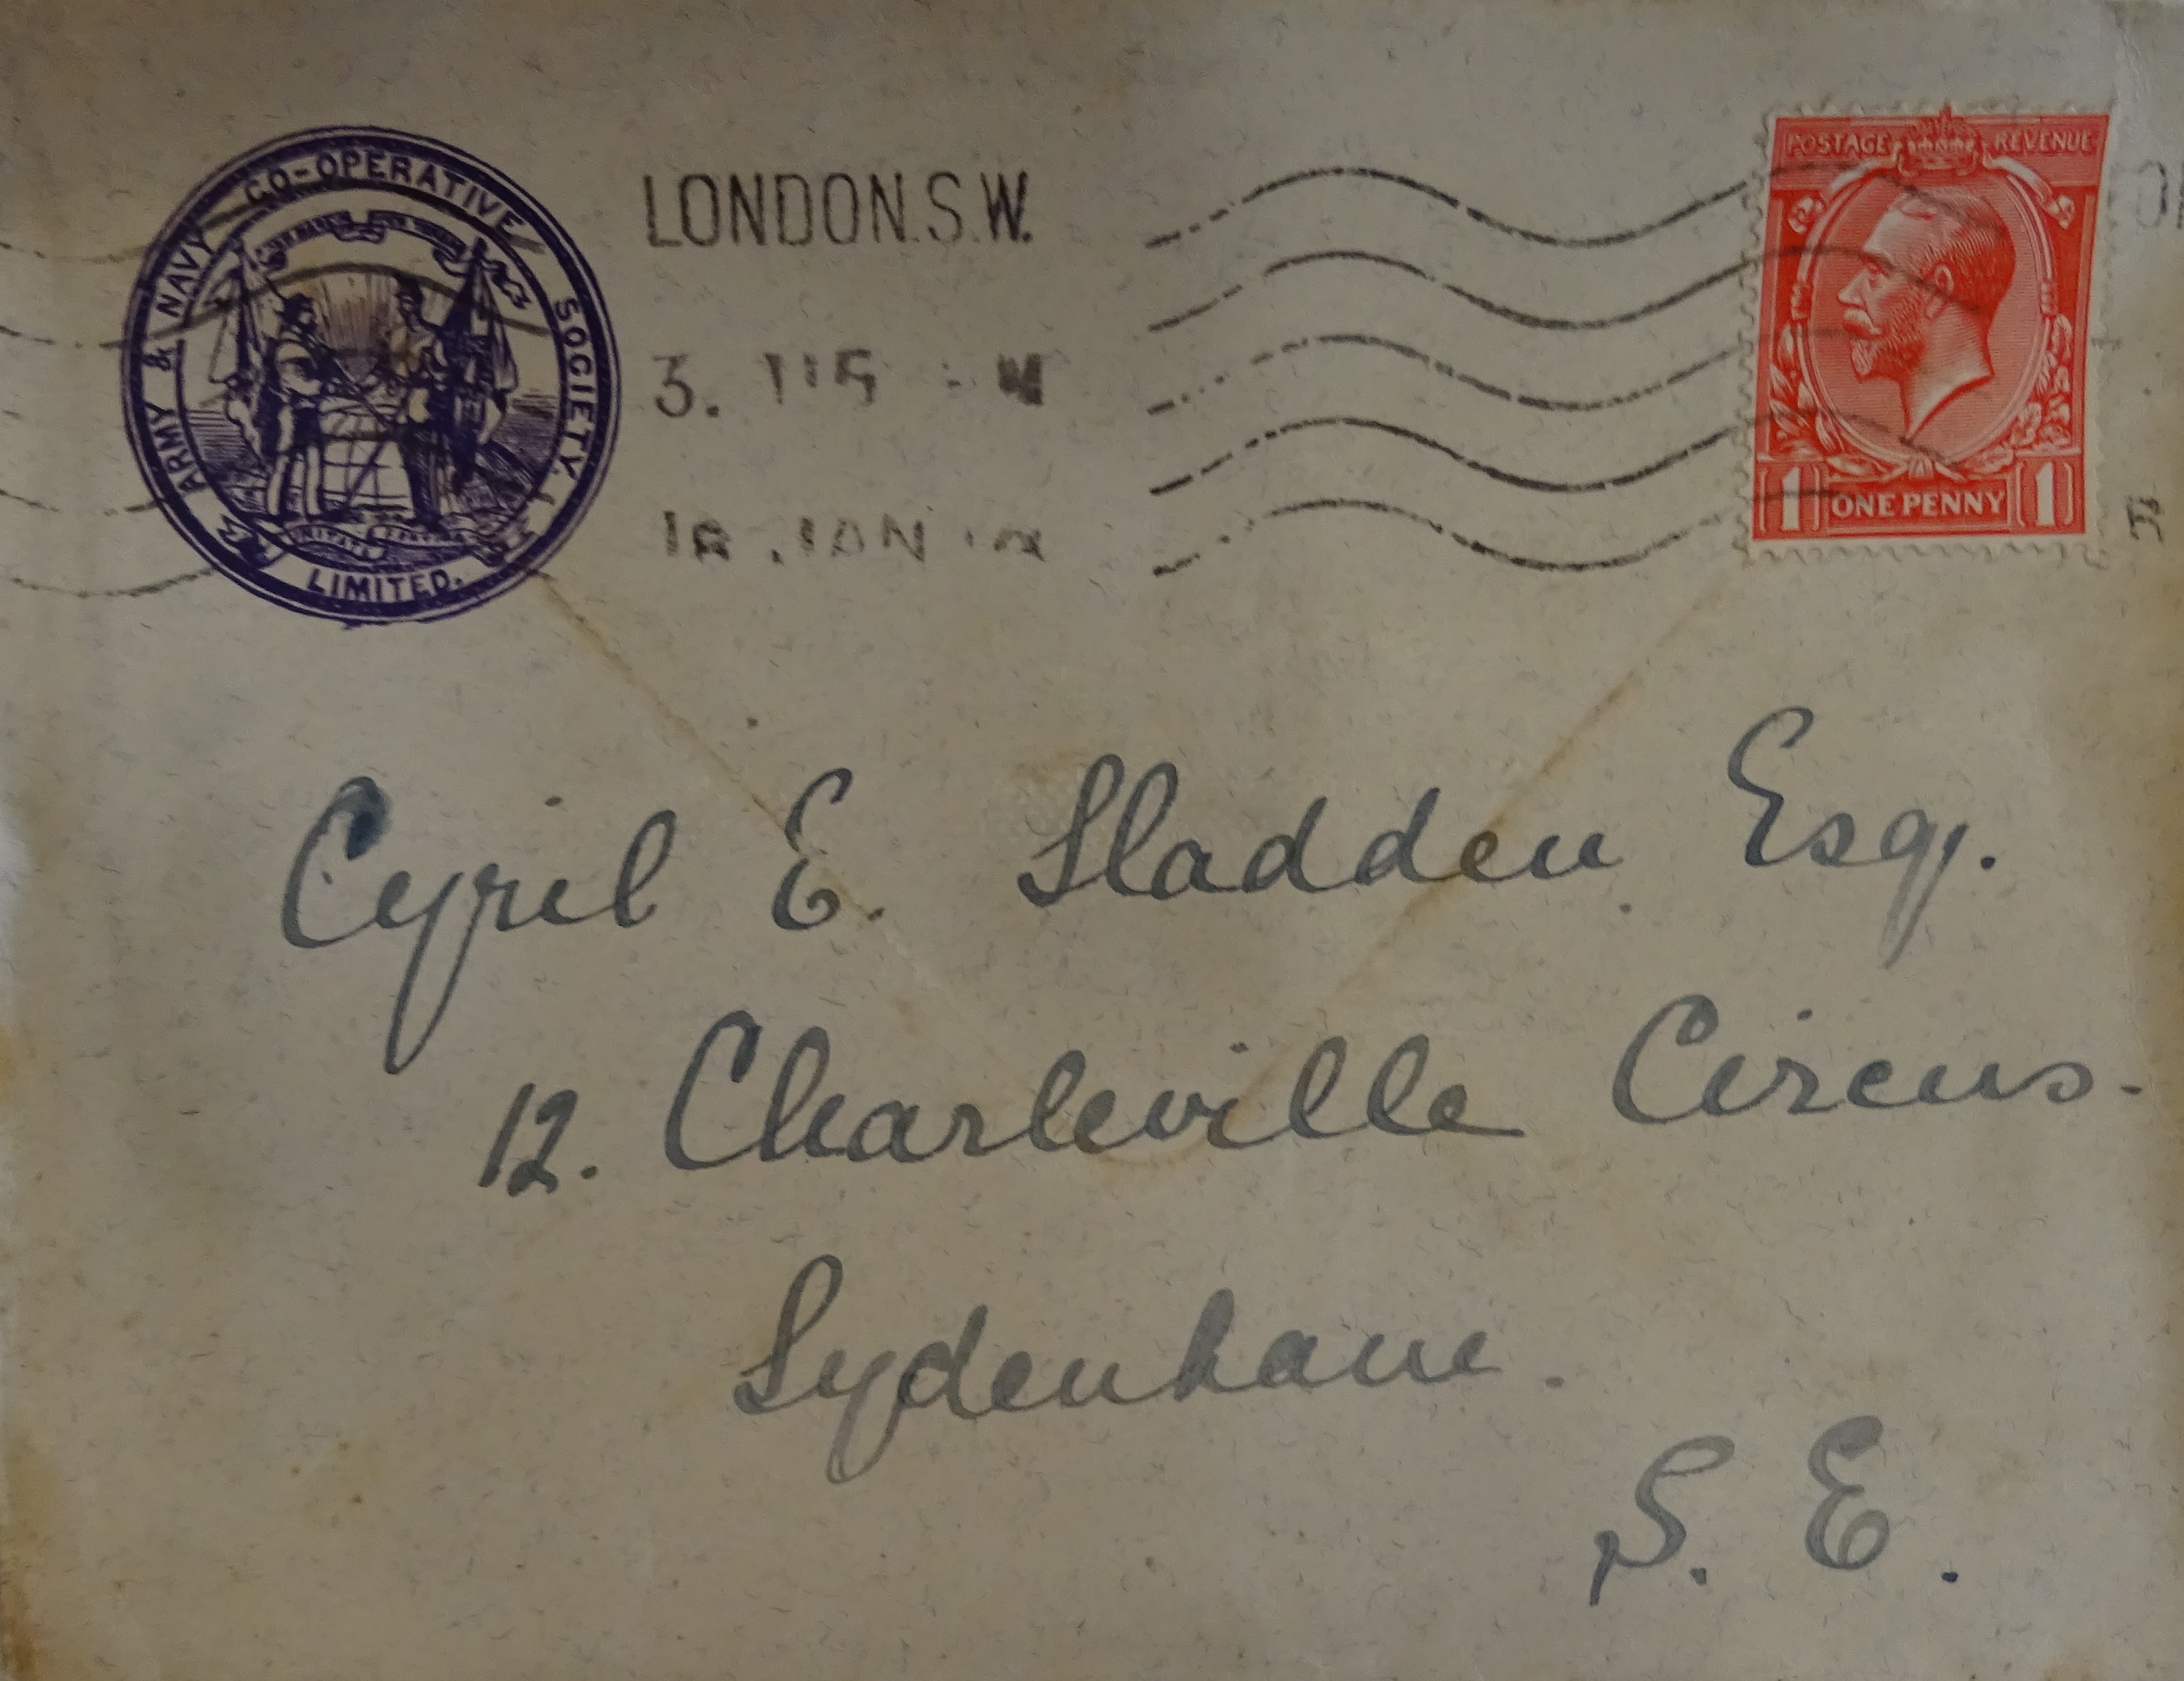 ARMY & NAVY CO-OPERATIVE SOCIETY.
LIMITED.
LONDON.S.W.
3.
JAN
POSTAGE REVENUE
1 ONE PENNY 1
Cyril E. Sladden Esq.
12. Charleville Circus.
Sydenham.
S. E.